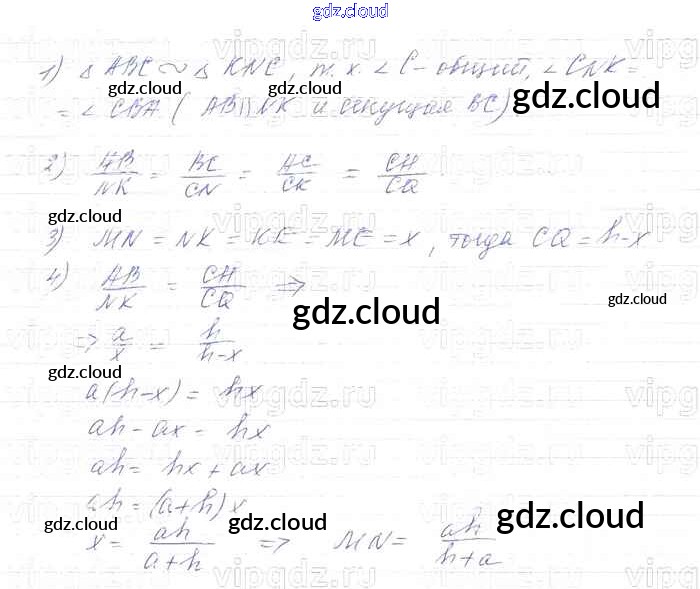 gdz.cloud
1) △ ABC ~ △ KNC, т.к. ∠ C - общий, ∠ CNK =
= ∠ CBA ( AB || NK и секущая BC)
gdz.cloud gdz.cloud gdz.cloud
2) AB/NK = BC/CN = AC/CK = CH/CQ
gdz.cloud gdz.cloud
3) MN = NK = KE = ME = x, тогда CQ = h-x
4) AB/NK = CH/CQ ⇒
gdz.cloud gdz.cloud
⇒ a/x = h/h-x
gdz.cloud
a(h-x) = hx
ah - ax = hx
ah = hx + ax
ah = (a+h)x
gdz.cloud gdz.cloud gdz.cloud
x = ah/a+h ⇒ MN = ah/h+a
gdz.cloud